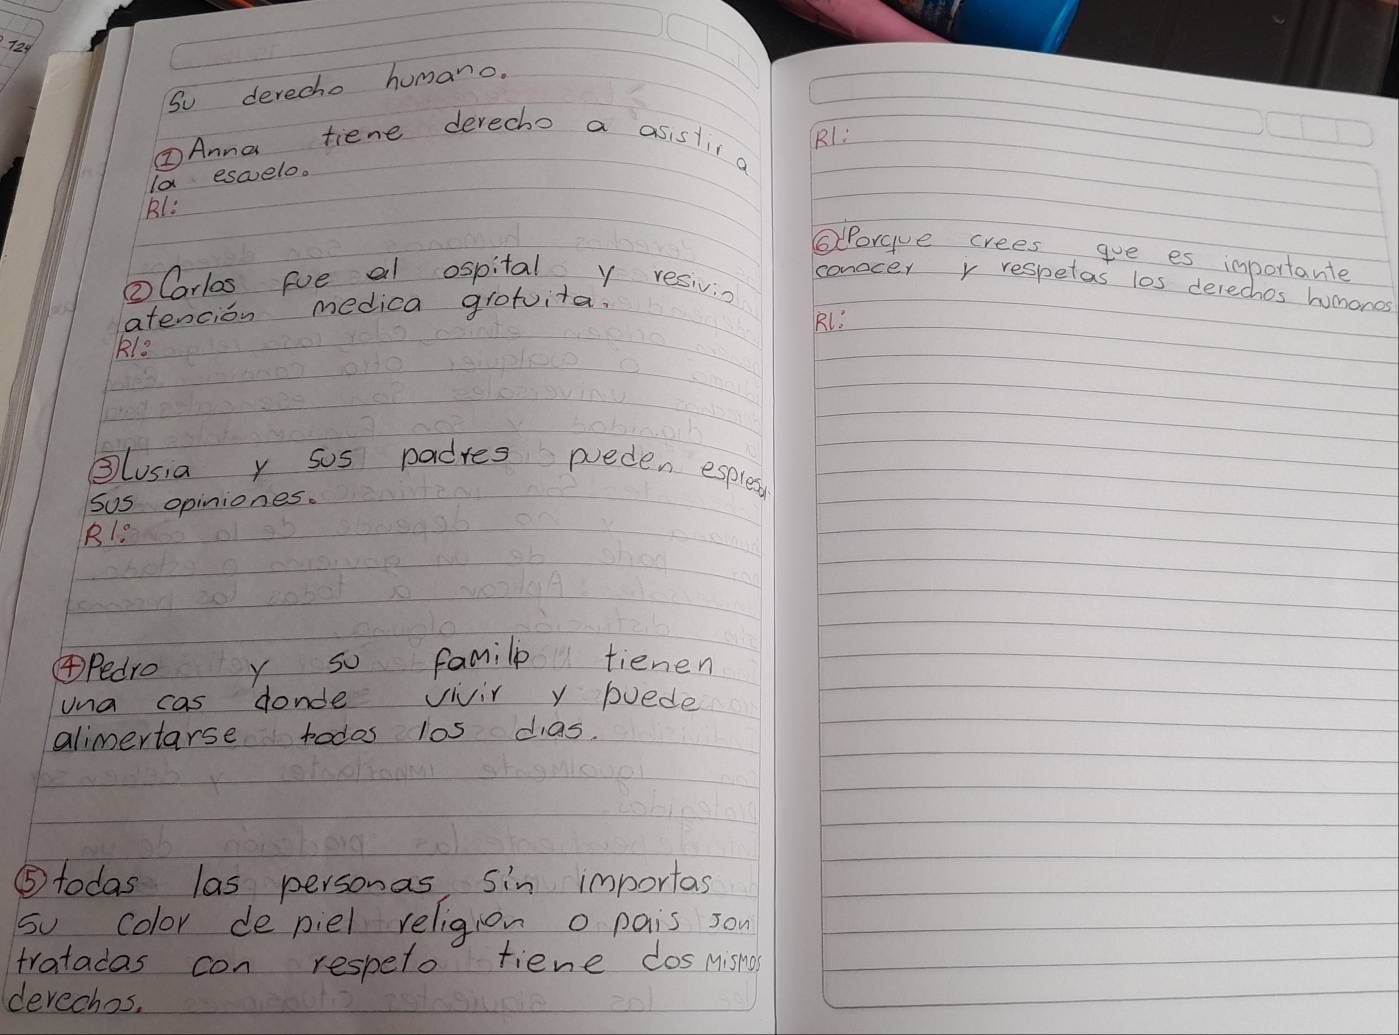 724
Su derecho humano.
① Anna tiene derecho a asistir a
la escuela.
Rl:
② Carlos fue al ospital y resivio
atención medica grotuita.
Rl:
③ Lusia y sus padres pueden espresar
sus opiniones.
Rl:
④ Pedro y su familia tienen
una cas donde vivir y puede
alimertarse todos los dias.
⑤ todas las personas sin importas
su color de piel religion o pais son
tratadas con respeto tiene dos mismos
derechos.
Rl:
⑥ ¿Porque crees que es importante
conocer y respetas los derechos humanos
Rl: